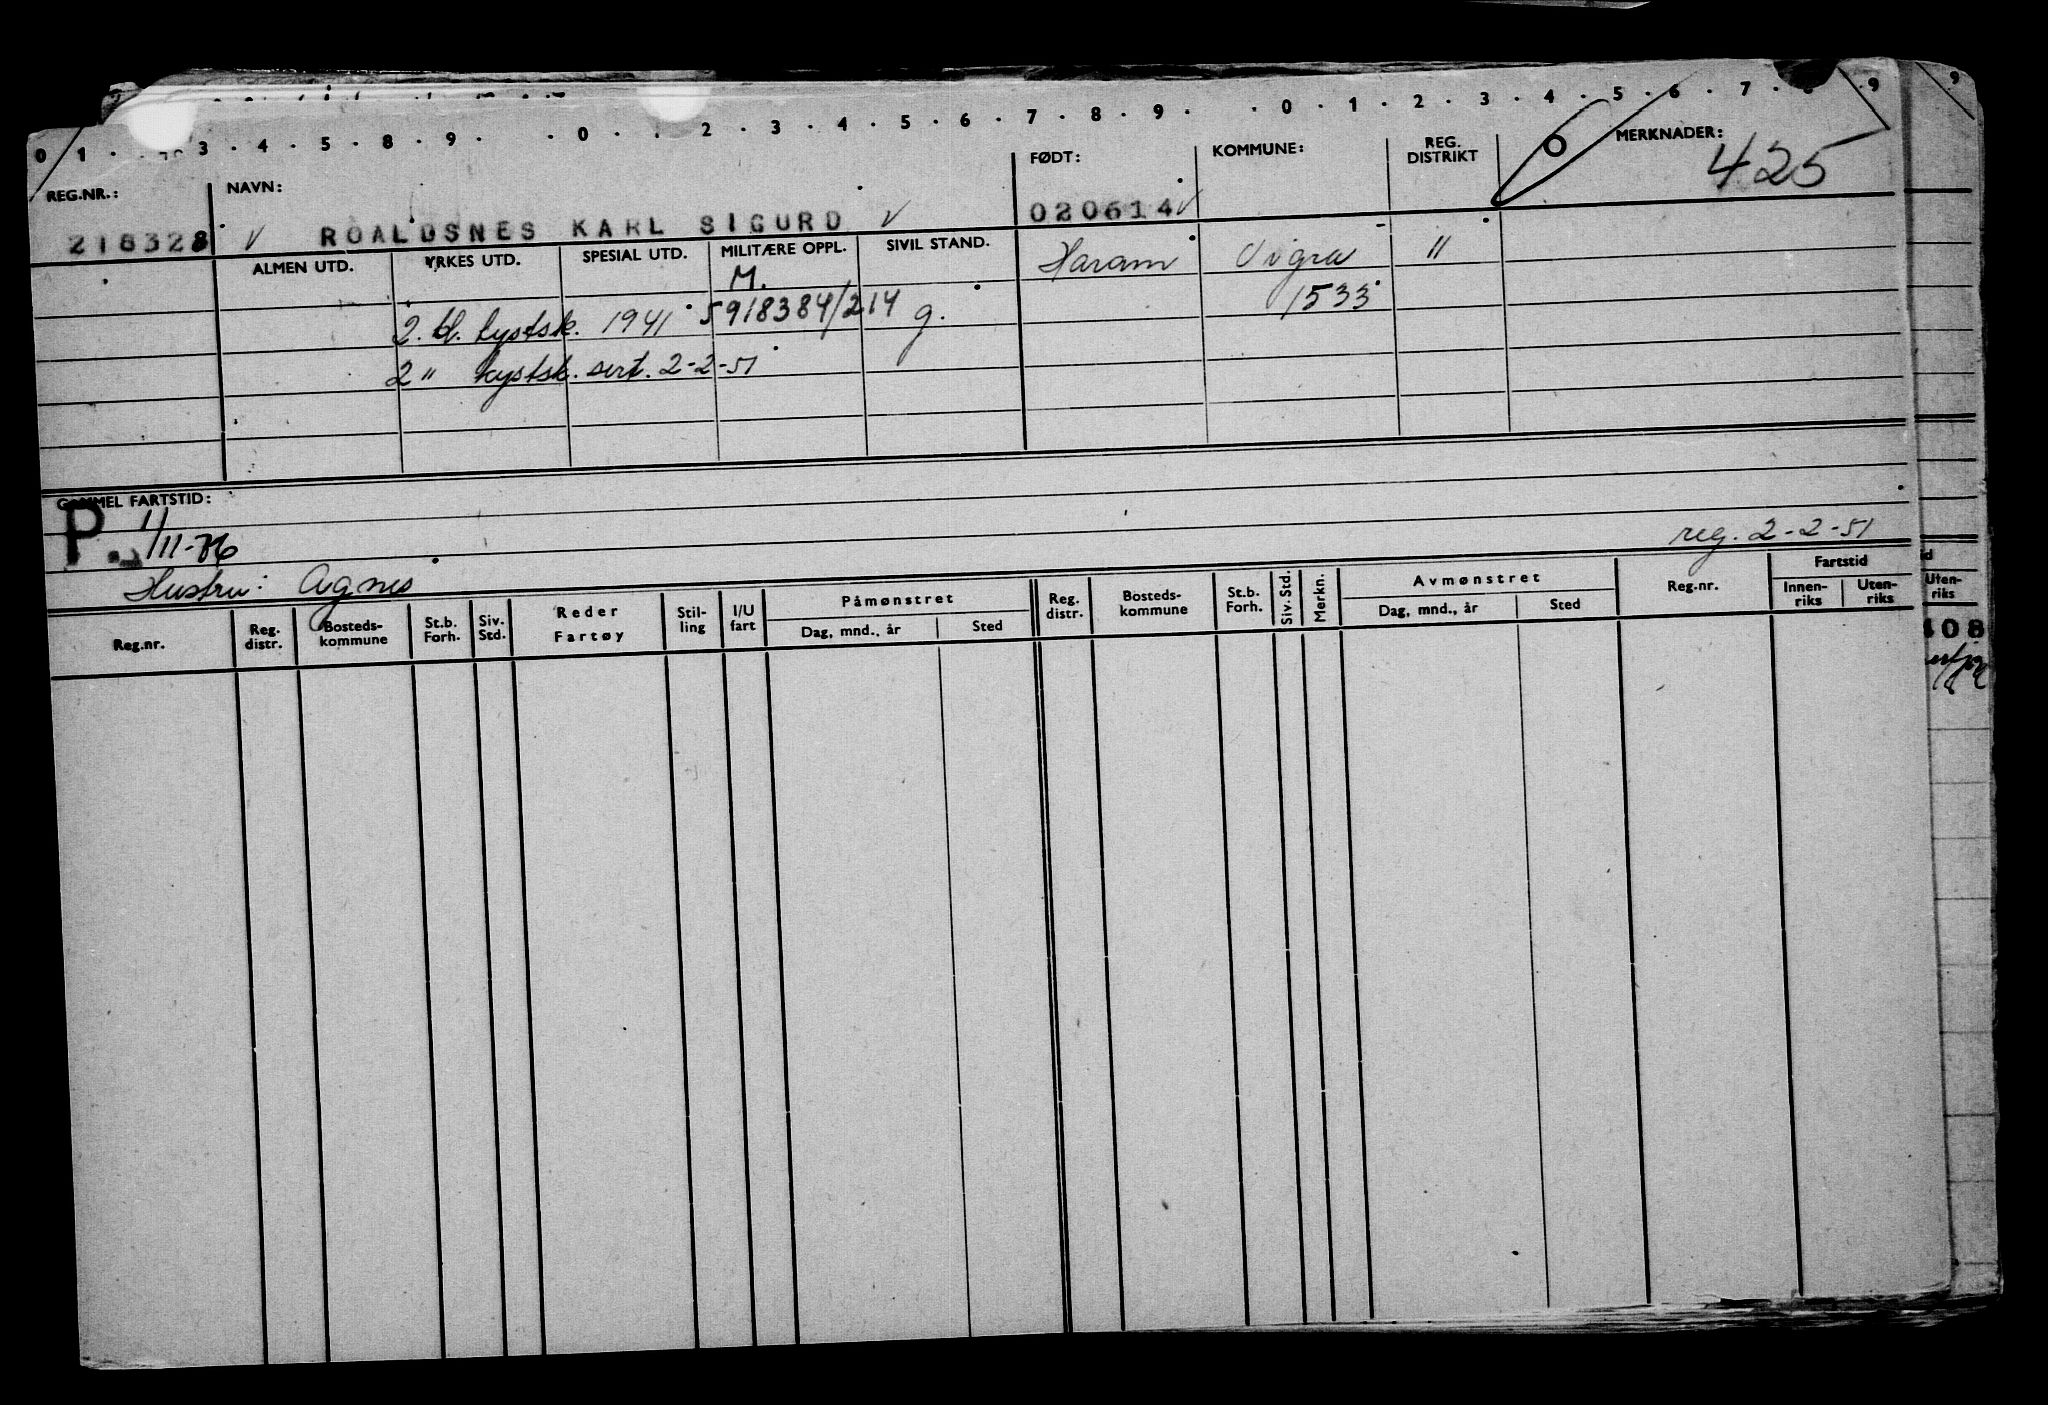 0 1 . 3 . 4 . 5 . 8 . 9 . . 0 . . 2 . 3 . 4 . 5 . 6 . 7 . 8 . 9 . . 0 . 1 . 2 . 3 . 4 . 5 . 6 . 7 . 8 . 9
REG.NR.: NAVN: FØDT: KOMMUNE: REG. DISTRIKT MERKNADER: 425
218328 ROALDSNES KARL SIGURD 020614
ALMEN UTD. YRKES UTD. SPESIAL UTD. MILITÆRE OPPL. SIVIL STAND. Haram Vigra 11
M. 1533
2. kl. kystsk. 1941 5918384/214 g.
2 " kystsk. sert. 2-2-51
GAMMEL FARTSTID:
P. 1/11-76
reg. 2-2-51
Hustru: Agnes
Reg.nr. Reg. distr. Bosteds-kommune St.b. Forh. Siv. Std. Reder Fartøy Stil-ling I/U fart Påmønstret Dag, mnd., år Sted Reg. distr. Bosteds-kommune St.b. Forh. Siv. Std. Merkn. Avmønstret Dag, mnd., år Sted Reg.nr. Fartstid Innen-riks Uten-riks
Uten-riks
408